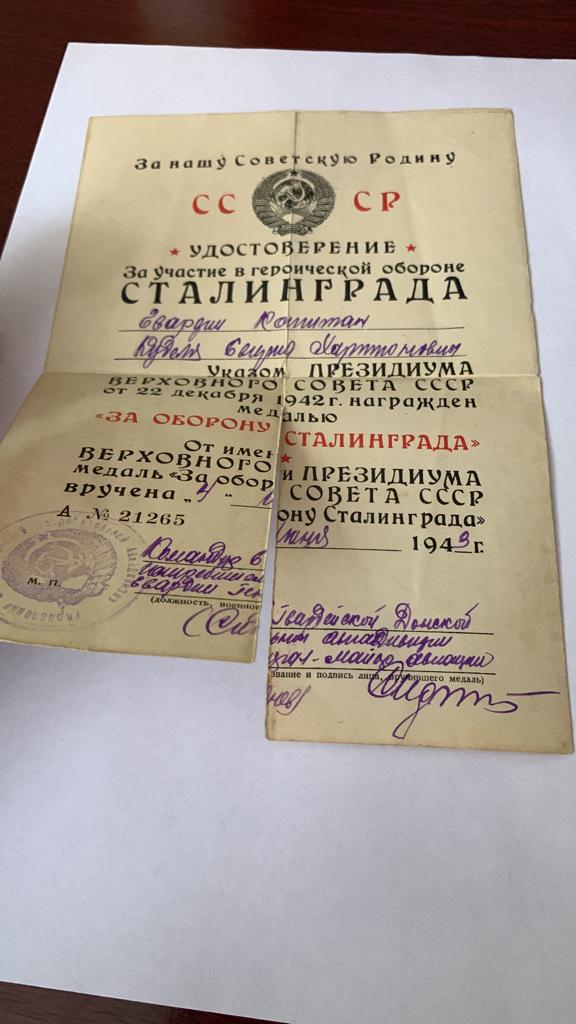 За нашу Советскую Родину
СС СР
УДОСТОВЕРЕНИЕ
За участие в героической обороне
СТАЛИНГРАДА
Гвардии Капитан
Харитонович
Указом ПРЕЗИДИУМА
ВЕРХОВНОГО СОВЕТА СССР
от 22 декабря 1942 г. награжден
медалью
«ЗА ОБОРОНУ СТАЛИНГРАДА»
От имени ПРЕЗИДИУМА
ВЕРХОВНОГО СОВЕТА СССР
медаль «За оборону Сталинграда»
вручена „4" июня 1943 г.
А № 21265
Гвардейской Донской
авиадивизии
гвардии ген-майор авиации
М. П.
(должность, военное звание и подпись лица, вручившего медаль)